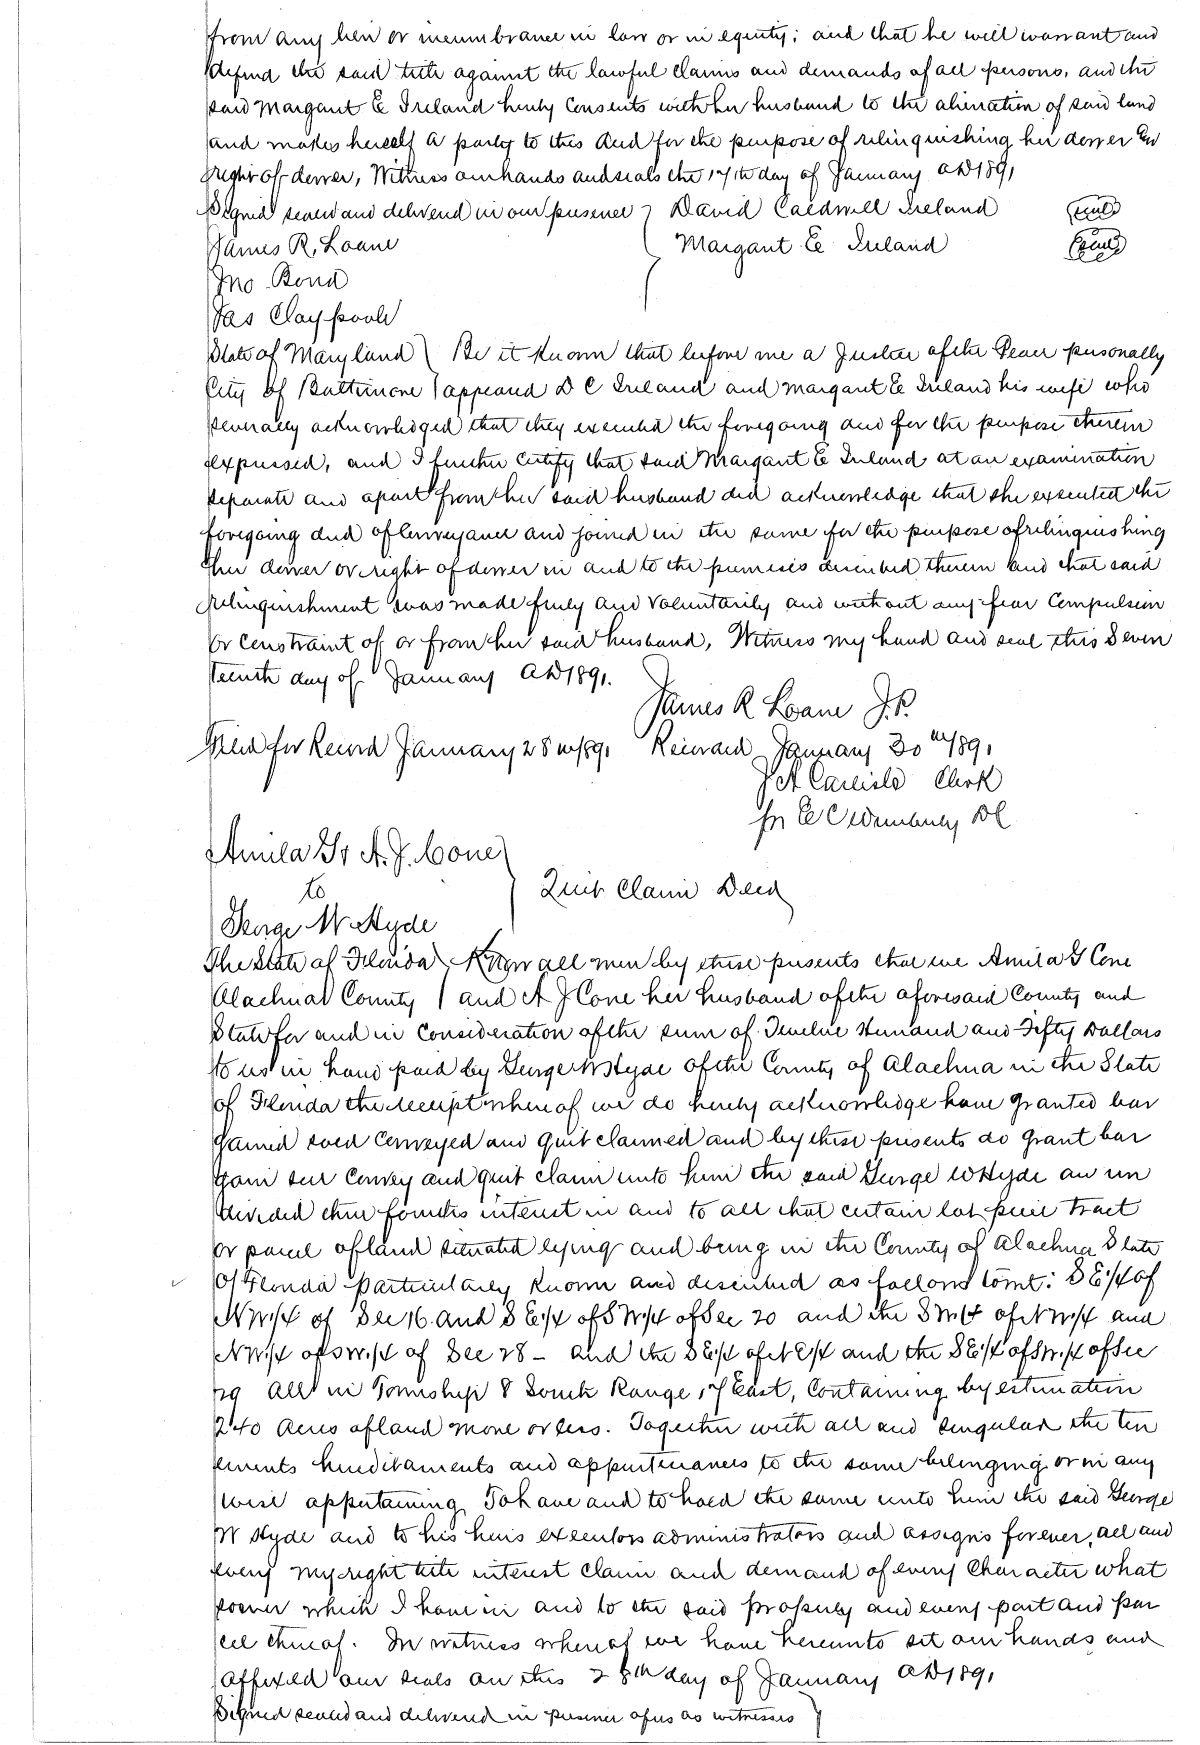 from any lien or incumbrance in law or in equity; and that he will warrant and
defend the said title against the lawful claims and demands of all persons, and the
said Margaret E Ireland hereby consents with her husband to the alination of said land
and makes herself a party to this deed for the purpose of relinquishing her dower and
right of dower, Witness our hands and seals the 17th day of January AD 1891
Signed sealed and delivered in our presence } David Caldwell Ireland (seal)
James R, Loane Margaret E Ireland (seal)
Jno. Bond
Jas Claypoole
State of Maryland } Be it Known that before me a Justice of the Peace personally
City of Baltimore } appeared D C Ireland and Margaret E Ireland his wife who
severally acknowledged that they executed the foregoing and for the purpose therein
expressed, and I further certify that said Margaret E Ireland at an examination
separate and apart from her said husband did acknowledge that she executed the
foregoing deed of Conveyance and joined in the same for the purpose of relinquishing
her dower or right of dower in and to the premises described therein and that said
relinquishment was made freely and voluntarily and without any fear compulsion
or constraint of or from her said husband, Witness my hand and seal this Seven
teenth day of January AD 1891.
James R Loane J.P.
Filed for Record January 28th 1891 Recorded January 30th 1891
J A Carlisle Clerk
pr E C DC
Amila G & A. J. Cone }
to } Quit Claim Deed
George W Hyde
The State of Florida } Know all men by these presents that we Amila G Cone
Alachua County } and A J Cone her husband of the aforesaid County and
State for and in consideration of the sum of Twelve Hundred and Fifty Dollars
to us in hand paid by George W Hyde of the County of Alachua in the State
of Florida the receipt whereof we do hereby acknowledge have granted bar
gained sold conveyed and quit claimed and by these presents do grant bar
gain sell convey and quit claim unto him the said George W Hyde an un
divided three fourths interest in and to all that certain lot piece tract
or parcel of land situated lying and being in the County of Alachua State
of Florida particularly known and described as follows towit: SE 1/4 of
NW 1/4 of Sec 16 and SE 1/4 of SW 1/4 of Sec 20 and the SW 1/4 of NW 1/4 and
NW 1/4 of SW 1/4 of Sec 28 - and the SE 1/4 of NE 1/4 and the SE 1/4 of SW 1/4 of Sec
29 all in Township 8 South Range 17 East, Containing by estimation
240 Acres of land more or less. Together with all and singular the ten
ements hereditaments and appurtenances to the same belonging or in any
wise appertaining To have and to hold the same unto him the said George
W Hyde and to his heirs executors administrators and assigns forever, all and
every my right title interest claim and demand of every Character what
soever which I have in and to the said property and every part and par
cel thereof. In witness whereof we have hereunto set our hands and
affixed our seals on this 28th day of January AD 1891
Signed sealed and delivered in presence of us as witnesses }